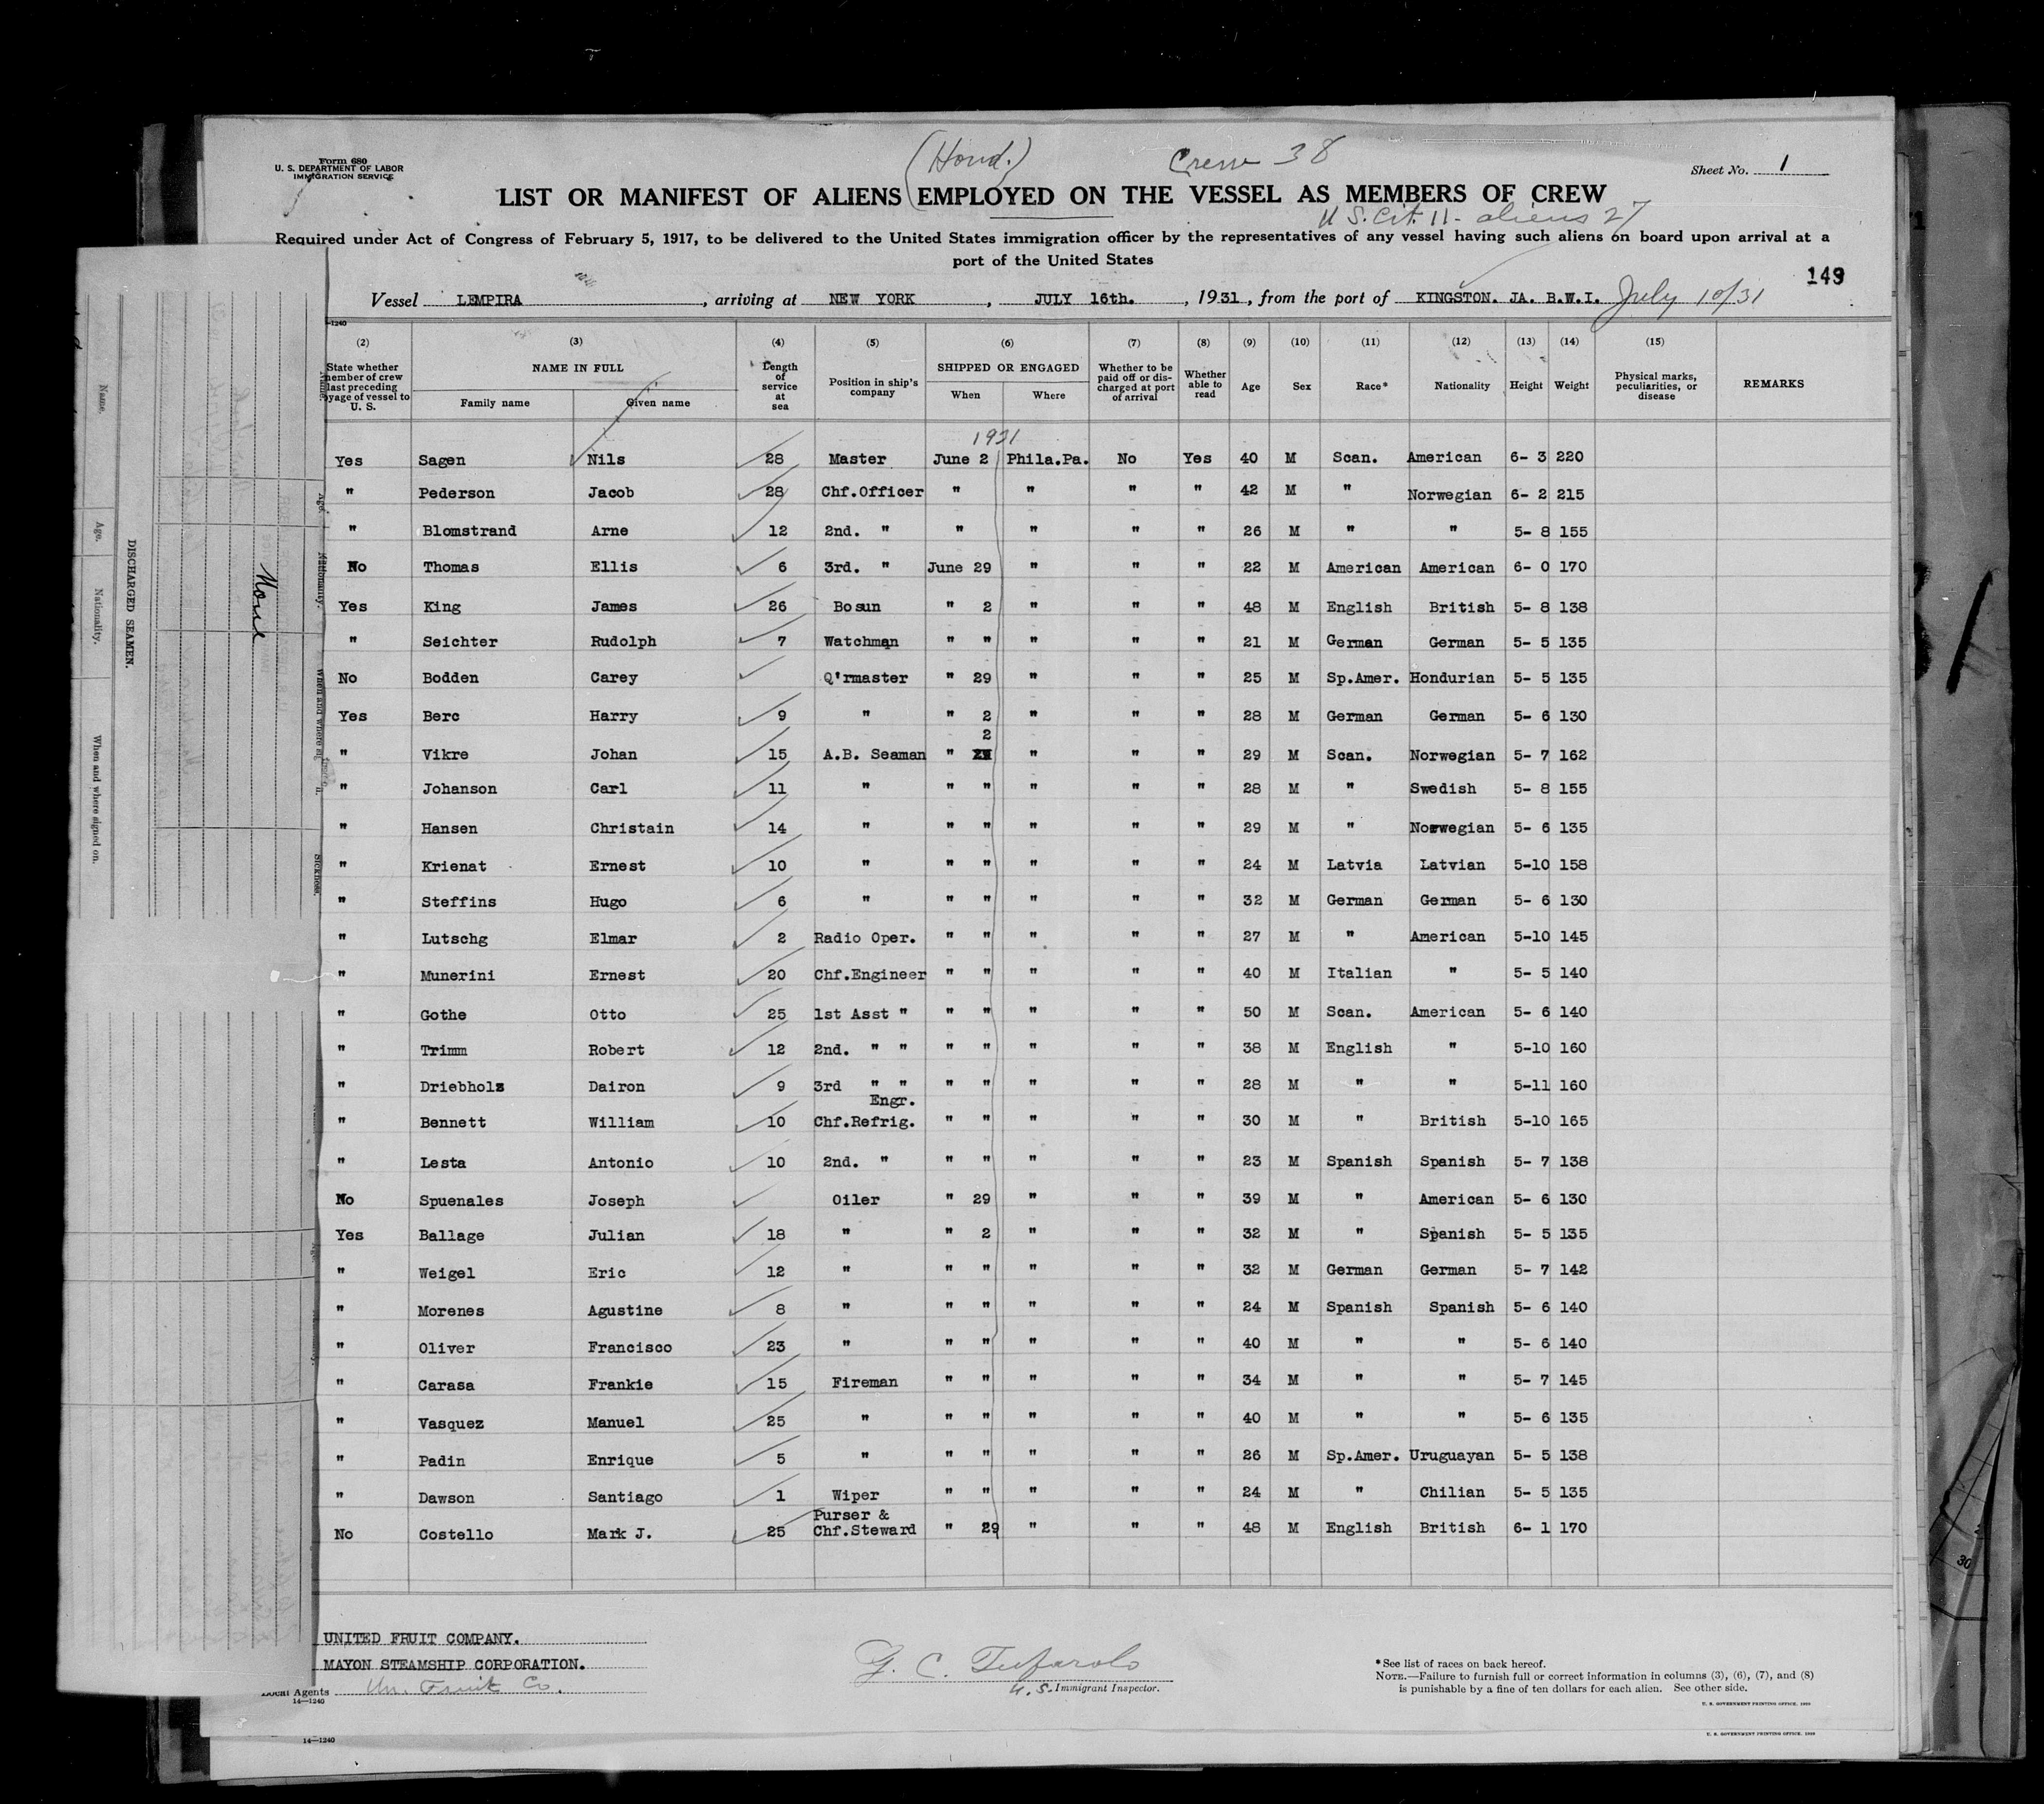 Form 680
U. S. DEPARTMENT OF LABOR
IMMIGRATION SERVICE
(Hond.)
Crew 38
Sheet No. 1
LIST OR MANIFEST OF ALIENS EMPLOYED ON THE VESSEL AS MEMBERS OF CREW
U S. Cit. 11 - aliens 27
Required under Act of Congress of February 5, 1917, to be delivered to the United States immigration officer by the representatives of any vessel having such aliens on board upon arrival at a
port of the United States
149
Vessel LEMPIRA, arriving at NEW YORK, JULY 16th., 1931, from the port of KINGSTON. JA. B.W.I. July 10/31
(2) (3) (4) (5) (6) (7) (8) (9) (10) (11) (12) (13) (14) (15)
State whether member of crew last preceding voyage of vessel to U. S. NAME IN FULL Family name Given name Length of service at sea Position in ship's company SHIPPED OR ENGAGED When Where Whether to be paid off or discharged at port of arrival Whether able to read Age Sex Race* Nationality Height Weight Physical marks, peculiarities, or disease REMARKS
1931
Yes Sagen Nils 28 Master June 2 Phila.Pa. No Yes 40 M Scan. American 6- 3 220
" Pederson Jacob 28 Chf.Officer " " " " 42 M " Norwegian 6- 2 215
" Blomstrand Arne 12 2nd. " " " " " 26 M " " 5- 8 155
No Thomas Ellis 6 3rd. " June 29 " " " 22 M American American 6- 0 170
Yes King James 26 Bosun " 2 " " " 48 M English British 5- 8 138
" Seichter Rudolph 7 Watchman " " " " " 21 M German German 5- 5 135
No Bodden Carey Q'rmaster " 29 " " " 25 M Sp.Amer. Hondurian 5- 5 135
Yes Berc Harry 9 " " 2 " " " 28 M German German 5- 6 130
" Vikre Johan 15 A.B. Seaman " 2 " " " 29 M Scan. Norwegian 5- 7 162
" Johanson Carl 11 " " " " " " 28 M " Swedish 5- 8 155
" Hansen Christain 14 " " " " " " 29 M " Norwegian 5- 6 135
" Krienat Ernest 10 " " " " " " 24 M Latvia Latvian 5-10 158
" Steffins Hugo 6 " " " " " " 32 M German German 5- 6 130
" Lutschg Elmar 2 Radio Oper. " " " " " 27 M " American 5-10 145
" Munerini Ernest 20 Chf.Engineer " " " " " 40 M Italian " 5- 5 140
" Gothe Otto 25 1st Asst " " " " " " 50 M Scan. American 5- 6 140
" Trimm Robert 12 2nd. " " " " " " " 38 M English " 5-10 160
" Driebholz Dairon 9 3rd " " " " " " " 28 M " " 5-11 160
" Bennett William 10 Chf.Refrig. Engr. " " " " " 30 M " British 5-10 165
" Lesta Antonio 10 2nd. " " " " " " 23 M Spanish Spanish 5- 7 138
No Spuenales Joseph Oiler " 29 " " " 39 M " American 5- 6 130
Yes Ballage Julian 18 " " 2 " " " 32 M " Spanish 5- 5 135
" Weigel Eric 12 " " " " " " 32 M German German 5- 7 142
" Morenes Agustine 8 " " " " " " 24 M Spanish Spanish 5- 6 140
" Oliver Francisco 23 " " " " " " 40 M " " 5- 6 140
" Carasa Frankie 15 Fireman " " " " " 34 M " " 5- 7 145
" Vasquez Manuel 25 " " " " " " 40 M " " 5- 6 135
" Padin Enrique 5 " " " " " " 26 M Sp.Amer. Uruguayan 5- 5 138
" Dawson Santiago 1 Wiper " " " " " 24 M " Chilian 5- 5 135
No Costello Mark J. 25 Purser & Chf.Steward " 29 " " " 48 M English British 6- 1 170
UNITED FRUIT COMPANY.
MAYON STEAMSHIP CORPORATION.
Local Agents Un. Fruit Co.
14—1240
G. C. Tufarolo
U.S. Immigrant Inspector.
*See list of races on back hereof.
NOTE.—Failure to furnish full or correct information in columns (3), (6), (7), and (8)
is punishable by a fine of ten dollars for each alien. See other side.
U. S. GOVERNMENT PRINTING OFFICE
U. S. GOVERNMENT PRINTING OFFICE
14—1240
DISCHARGED SEAMEN.
Name.
Age.
Nationality.
When and where signed on.
None
Sickness.
30